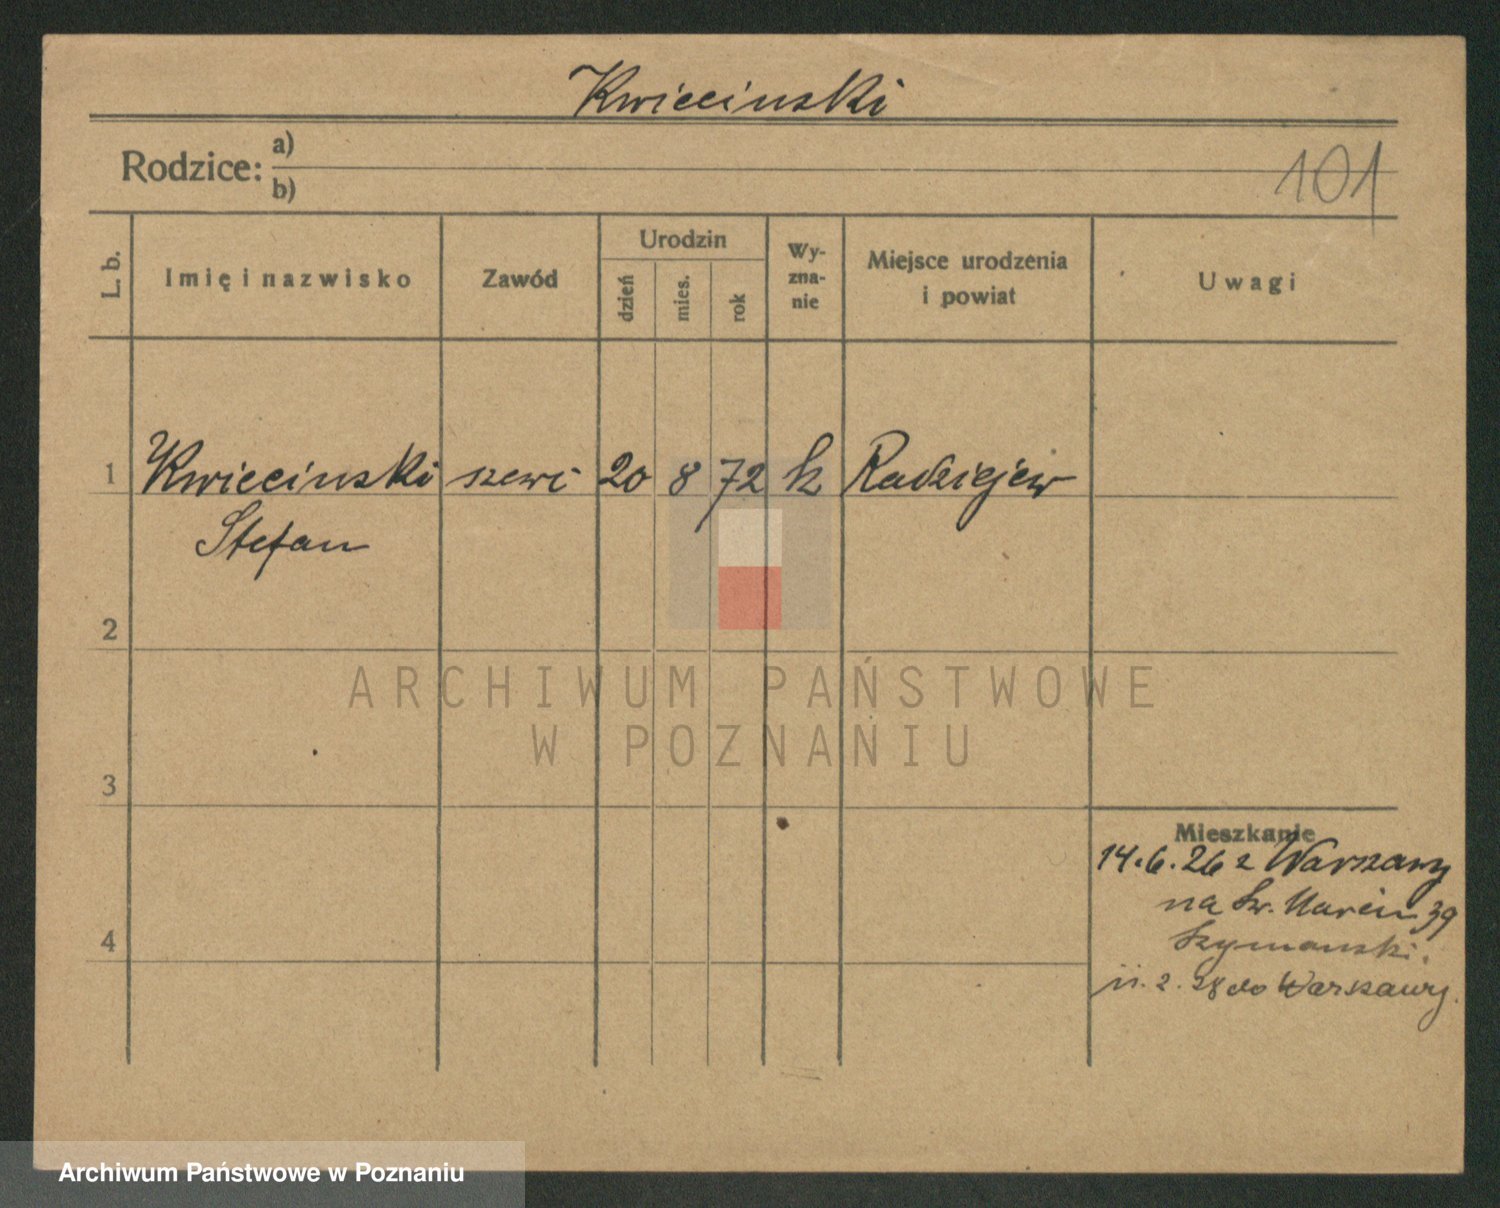 Kwiecinski
Rodzice: a)
b)
101
L. b.
Imię i nazwisko
Zawód
Urodzin
dzień
mies.
rok
Wy-
zna-
nie
Miejsce urodzenia
i powiat
Uwagi
1 Kwiecinski szewc 20 8 72 k Radziejew
Stefan
2
3
4
Mieszkanie
14.6.26 z Warszawy
na Św. Marcin 39
Szymanski.
11.2.28 do Warszawy.
ARCHIWUM PAŃSTWOWE
W POZNANIU
Archiwum Państwowe w Poznaniu